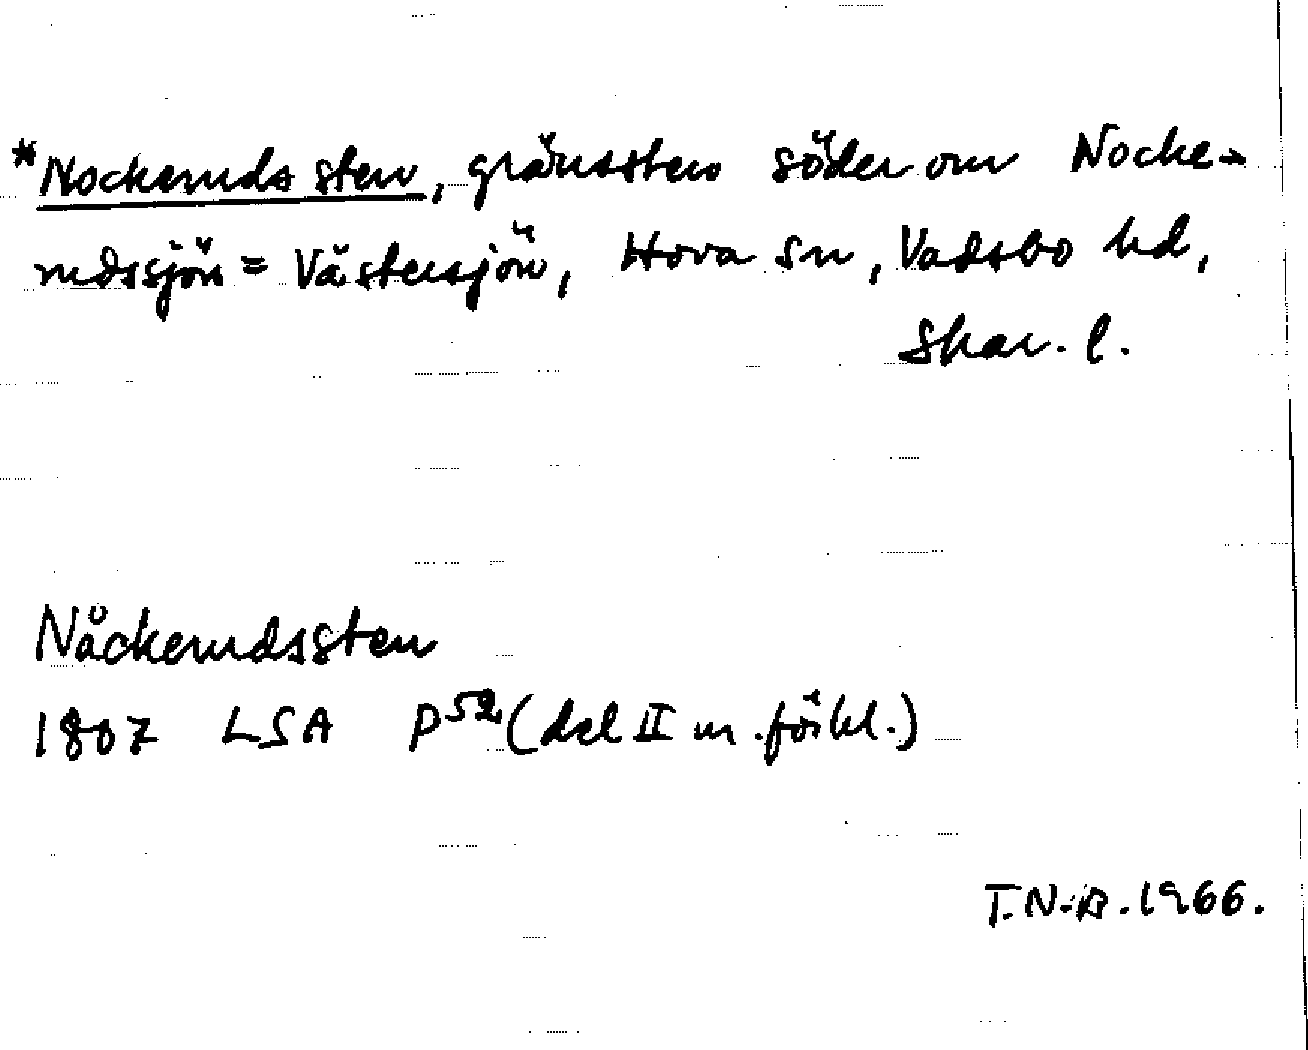 *Nockeruds sten, gränssten söder om Nocke-
rudssjön = Västersjön, Hova sn, Vadsbo hd,
Skar. l.
Nåckerudssten
1807 LSA P52 (del II m. förkl.)
T.N-n. 1966.